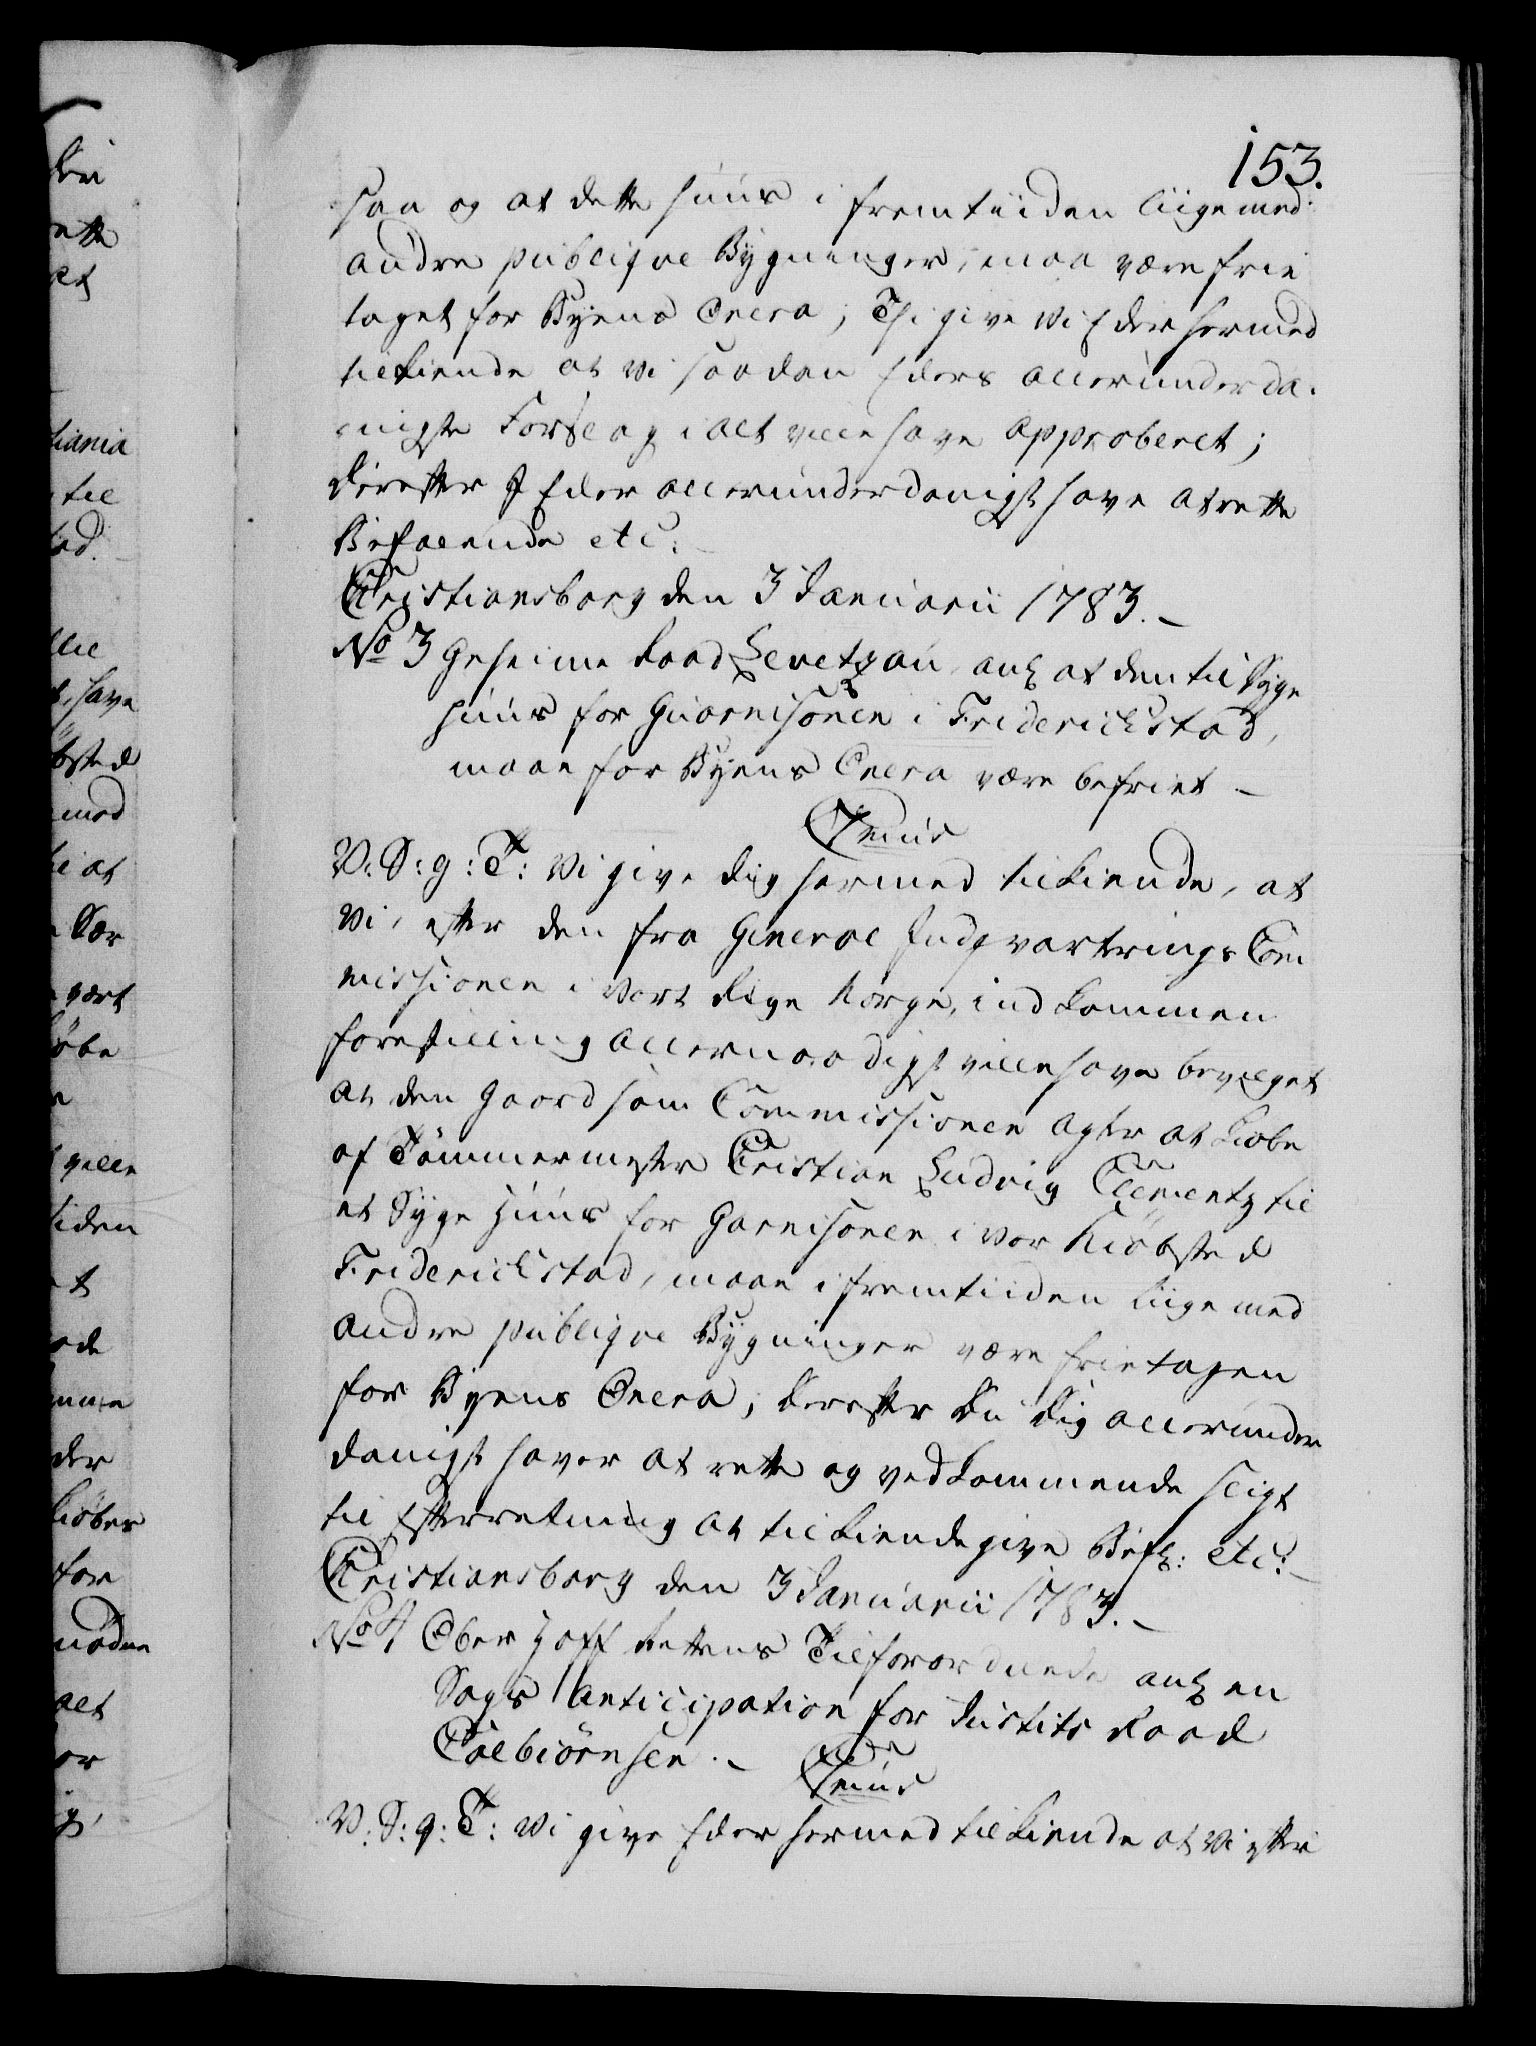 153.
saa og at dette Huus i fremtiiden liige med
andre publiqve Bÿgninger, maa være frie
taget for Byens Onera; Thi give Vi Eder hermed
tilkiende at Vi saadan Eders allerunderda-
nigste Forslag i alt ville have approberet;
Derefter I Eder allerunderdanigst have at rette
Befalende etc:
Christiansborg den 3 Januarii 1783.-
No 3 Geheime Raad Levetzau ang at den til Syge
Huus for Guarnisonen i Friderichstad,
maae for Byens Onera være befriet -
Cr. 7mus
V: S: g: T: Vi give dig hermed tilkiende, at
Vi, efter den fra General Indqvarterings Com
missionen i Vort Rige Norge, indkommen
forestilling allernaadigst ville have bevilget
at den Gaard som Commissionen agter at kiøbe
af Tømmermester Christian Ludvig Clementz til
et Syge Huus for Garnisonen i vor Kiøbsted
Friderichstad, maae i fremtiiden liige med
andre publiqve Bygninger være frietagen
for Byens Onera; Derefter Du Dig allerunder
danigst haver at rette og vedkommende sligt
til Efterretning at tilkiendegive Befl: etc:
Christiansborg den 3 Januarii 1783.-
No 4 Ober Hoff Rettens Tilforordnede ang en
Sags Anticipation for Justits Raad
Colbiörnsen.-
Cr. 7mus
V: S: g: T: Vi give Eder hermed tilkiende at Vi efter